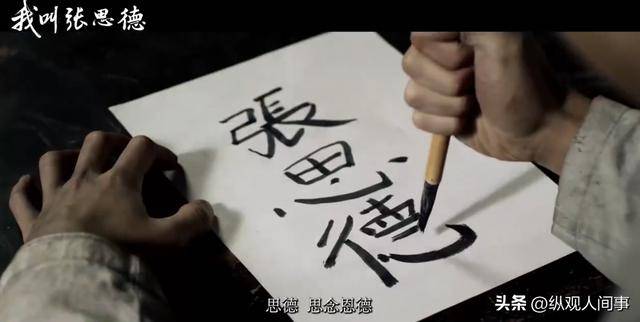 我叫张思德
張思德
思德 思念恩德
头条 @纵观人间事